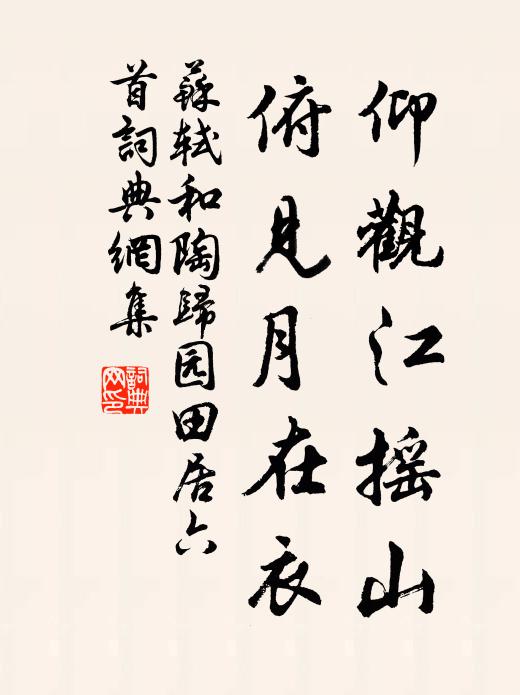 仰觀江摇山
俯見月在衣
蘇軾和陶歸园田居六
首詞典網集
詞典网印